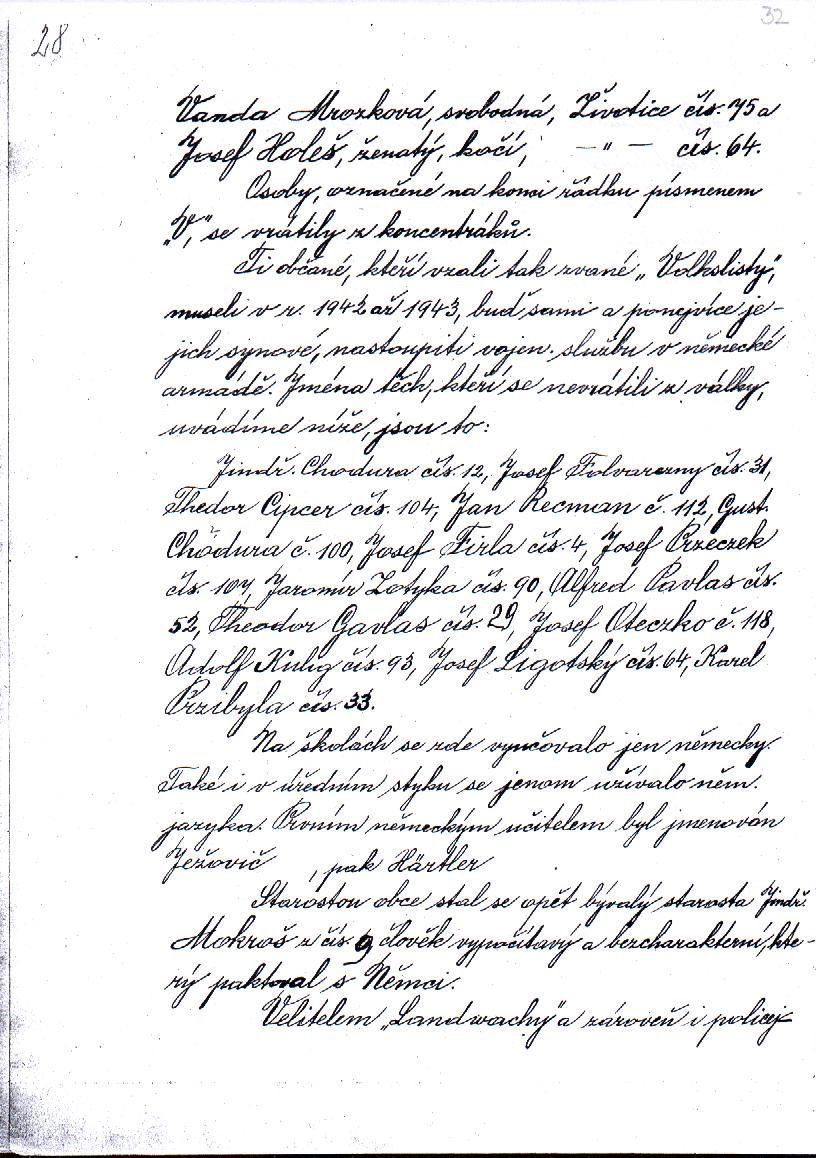 28
32
Vanda Mrozková, svobodná, Životice čís. 75 a
Josef Holeš, ženatý, kočí, — " — čís. 64.
Osoby, označené na konci řádku písmenem
„V“, se vrátily z koncentráků.
Ti občané, kteří vzali tak zvané „Volkslisty“,
museli v r. 1942 až 1943, buď sami a ponejvíce je-
jich synové, nastoupiti vojen. službu v německé
armádě. Jména těch, kteří se nevrátili z války,
uvádíme níže, jsou to:
Jindř. Chodura čís. 12, Josef Folvarczny čís. 31,
Thedor Cipcer čís. 104, Jan Recman č. 112, Gust.
Chodura č. 100, Josef Firla čís. 4, Josef Przeczek
čís. 107, Jaromír Zotyka čís. 90, Alfred Pavlas čís.
52, Theodor Gavlas čís. 29, Josef Oteczko č. 118,
Adolf Kulig čís. 93, Josef Ligotský čís. 64, Karel
Przibyla čís. 33.
Na školách se zde vyučovalo jen německy.
Také i v úředním styku se jenom užívalo něm.
jazyka. Prvním německým učitelem byl jmenován
Ježovič , pak Härtler
Starostou obce stal se opět bývalý starosta Jindř.
Mokroš z čís 9 člověk vypočítavý a bezcharakterní, kte-
rý paktoval s Němci.
Velitelem „Landwachy“ a zároveň i policej-